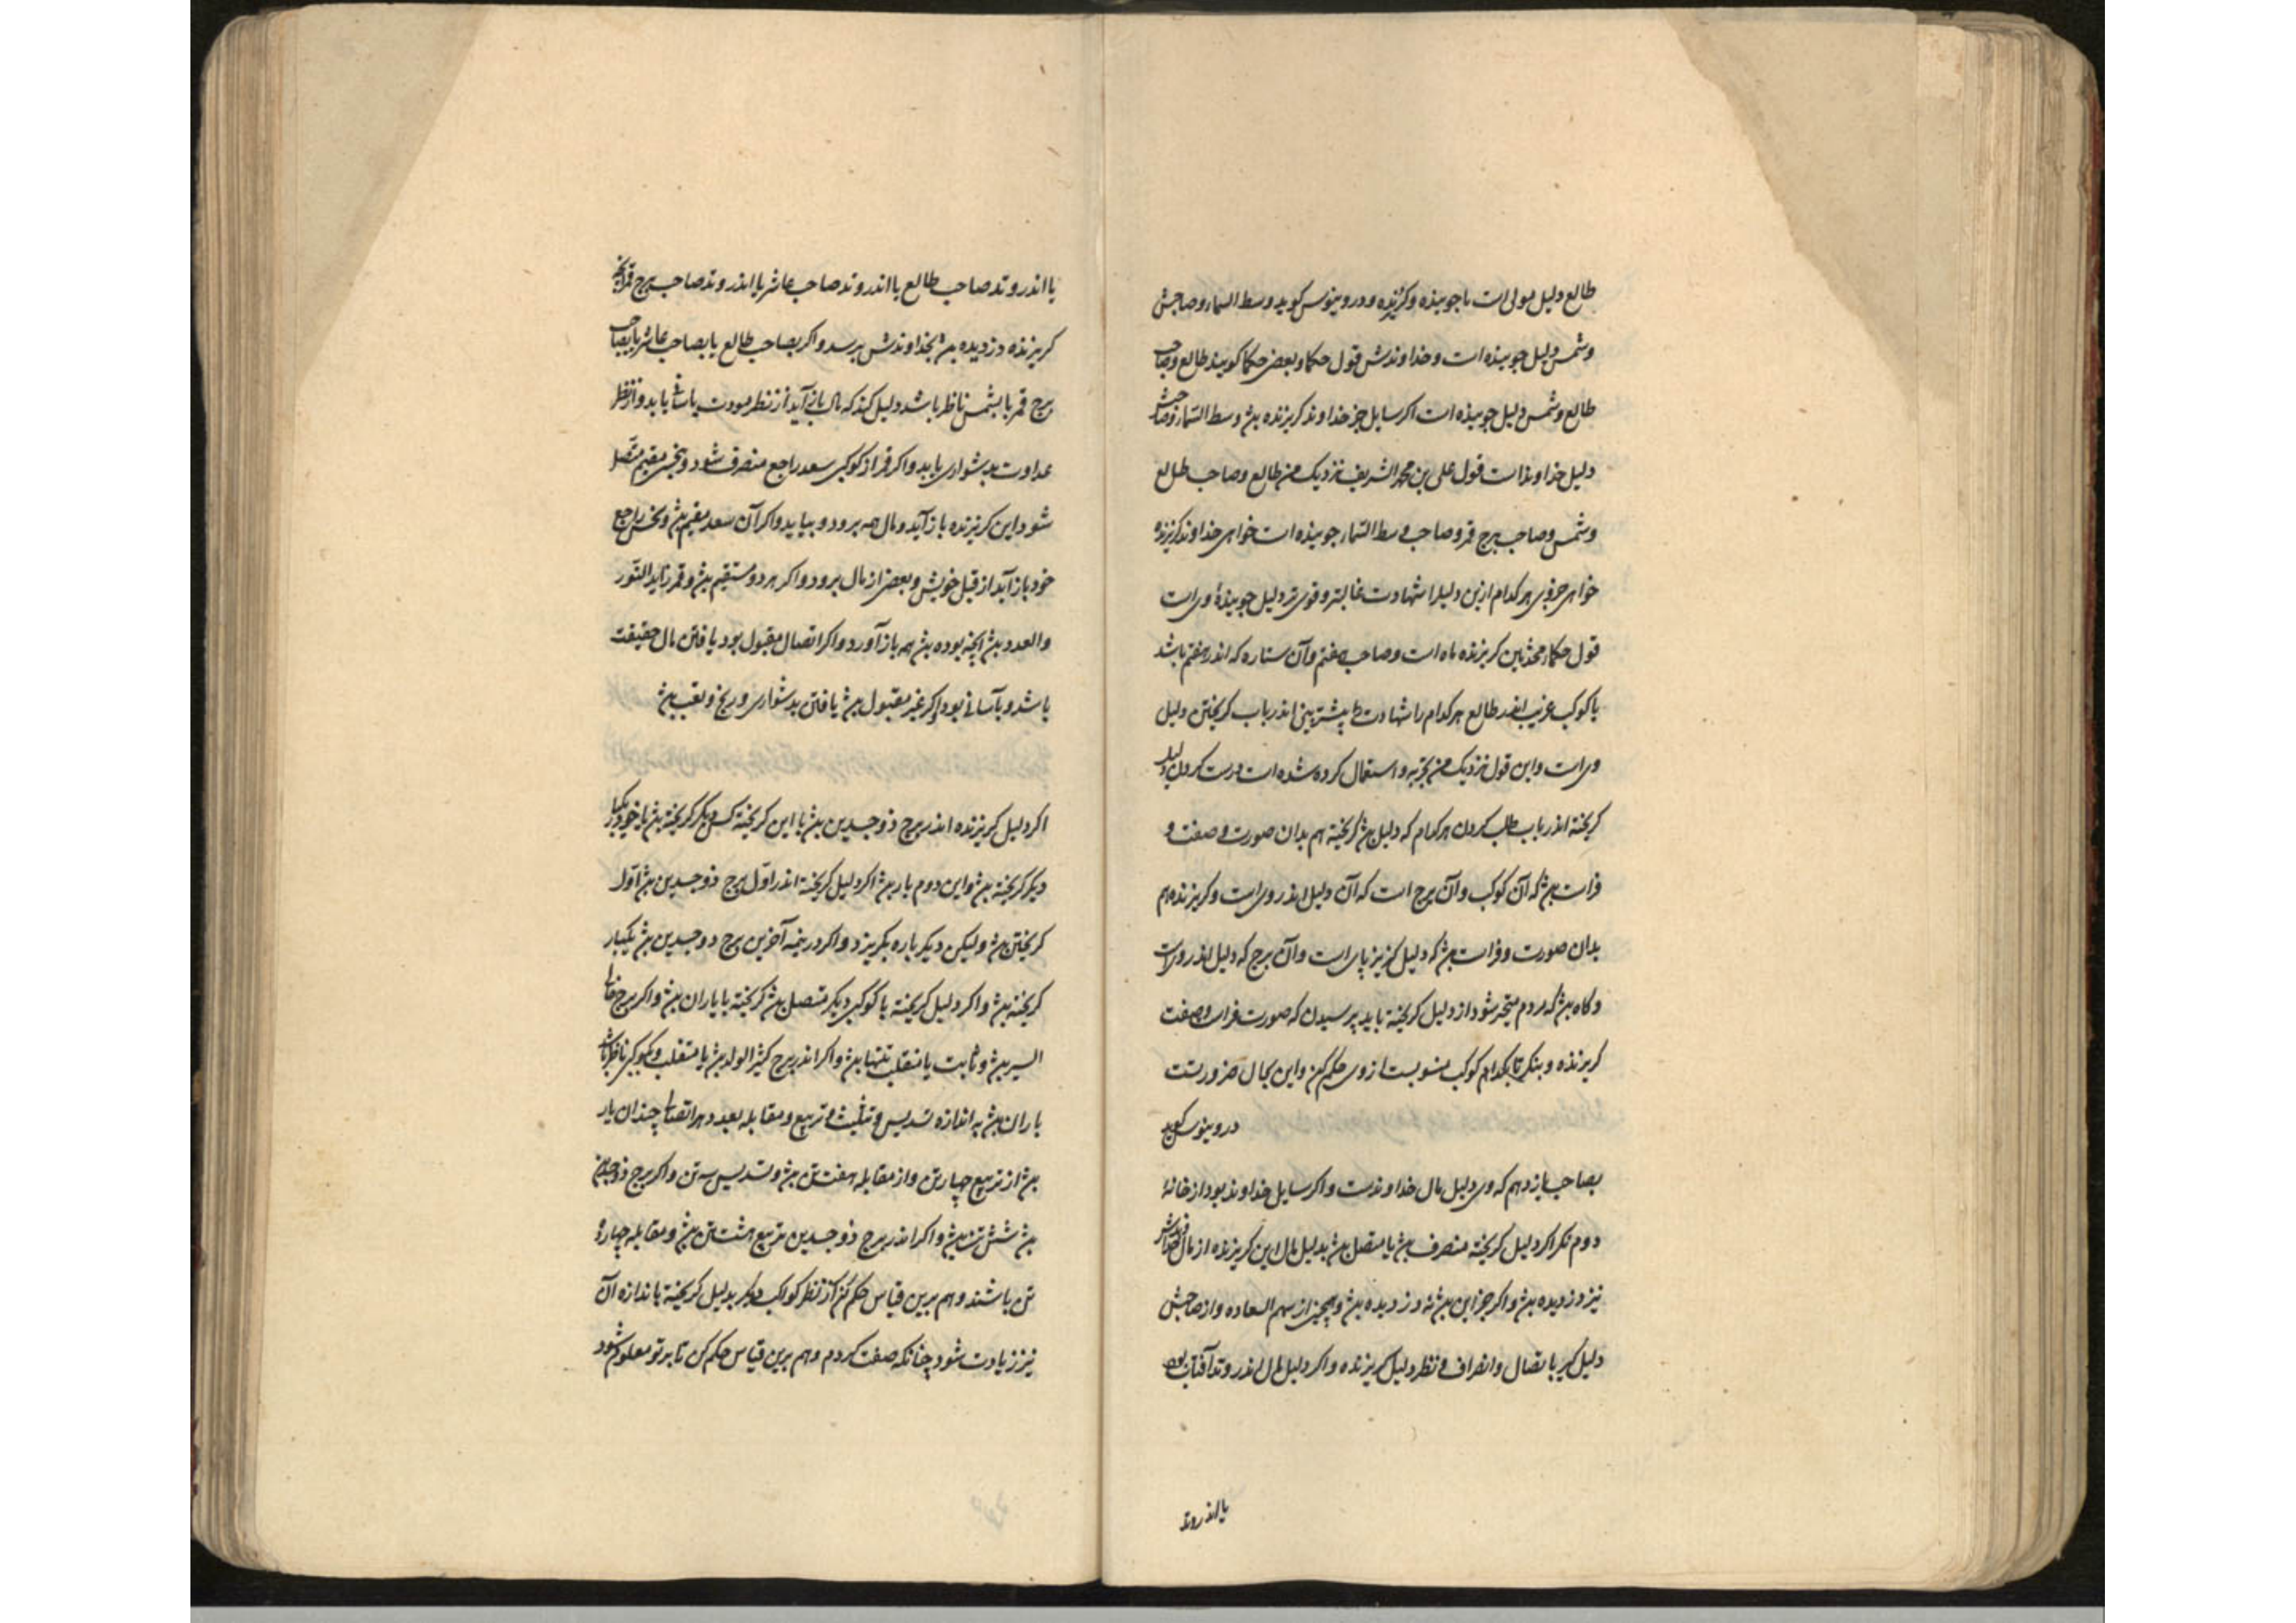 طالع دلیل سولی است با جوینده وکریزنده ودروینوس کوید وسط السماء وصاحبش
وشمس دلیل جوینده است وخداوندش قول حکما وبعضی حکما کویند طالع وصاحب
طالع وشمس دلیل جوینده است اکر سایل جز خداوند کریزنده بود وسط السماء وصاحبش
دلیل خداوند است قول علی بن محمد الشریف نزدیک من طالع وصاحب طالع
وشمس وصاحب برج قمر وصاحب وسط السماء جوینده است خواهی خداوند کریزنده
خواهی جزوی هر کدام ازین دلیلرا شهادت غالبتر وقوی تر دلیل جوینده وی است
قول حکماء محدثین کریزنده ماه است وصاحب هفتم وآن ستاره که اندر هفتم باشد
یا کوکب غریب اندر طالع هر کدام را شهادت بیشتر بینی اندر باب کریختن دلیل
وی است واین قول نزدیک من تجربه واستعمال کرده شده است درست کردن دلیل
کریخته اندر باب طلب کردن هر کدام که دلیل بود کریخته هم بدان صورت وصفت و
فراست بود که آن کوکب وآن برج است که آن دلیل اندر وی است وکریزنده هم
بدان صورت وفراست بود که دلیل کریزپای است وآن برج که دلیل اندر وی است
وکاه بود که مردم متحیر شود از دلیل کریخته باید پرسیدن که صورت فراست وصفت
کریزنده وبنکر تا بکدام کوکب منسوبست از وی حکم کن واین بحال ضرورتست
دروینوس کوید
بصاحب یازدهم که وی دلیل مال خداوندست واکر سایل خداوند بود از خانهٔ
دوم نکر اکر دلیل کریخته منصرف بود یا متصل بود بدلیل مال این کریزنده از مال خداوندش
نیز دزدیده بود واکر جز این بود نه دزدیده بود وهمچنین از سهم السعاده واز صاحبش
دلیل کیر باتصال وانصراف ونظر دلیل کریزنده واکر دلیل مال اندر وتد آفتاب بود
یا اندر وتد
یا اندر وتد صاحب طالع یا اندر وتد صاحب عاشر یا اندر وتد صاحب برج قمر آنچه
کریزنده دزدیده بود بخداوندش برسد واکر بصاحب طالع یا بصاحب عاشر یا بصاحب
برج قمر یا بشمس ناظر باشد دلیل کند که مال باز آید از نظر مودت باسانی یابد واز نظر
عداوت بدشواری یابد واکر قمر از کوکبی سعد راجع منصرف شود وبنحس مقیم متصل
شود این کریزنده باز آید ومال همه برود وبیابد واکر آن سعد مقیم بود ونحس راجع
خود باز آید از قبل خویش وبعضی از مال برود واکر هر دو مستقیم بود وقمر زاید النور
والعدد بود آنچه بوده بود همه باز آورد واکر اتصال مقبول بود یافتن مال حقیقت
باشد وبآسانی بود اکر غیر مقبول بود یافتن بدشواری ورنج وتعب بود
اکر دلیل کریزنده اندر برج ذوجسدین بود با این کریخته کس دیکر کریخته بود یا خود یکبار
دیکر کریخته بود واین دوم بار بود اکر دلیل کریخته اندر اول برج ذوجسدین بود اول
کریختن بود ولیکن دیکر باره بکریزد واکر در نیمه آخرین برج ذوجسدین بود یکبار
کریخته بود واکر دلیل کریخته با کوکبی دیکر متصل بود کریخته با یاران بود واکر برج خالی
السیر بود وثابت یا منقلب تنها بود واکر اندر برج کثیر الولد بود یا منقلب وکوکبی ناظر باشد
یاران بود به اندازه تسدیس وتثلیث وتربیع ومقابله بعدد هر اتصالی چندان یار
بود از تربیع چهار تن واز مقابله هفت تن بود وتسدیس سه تن واکر برج ذوجسدین
بود شش تن بود واکر اندر برج ذوجسدین تربیع هشت تن بود ومقابله چهارده
تن باشند وهم برین قیاس حکم کن از نظر کواکب دیکر بدلیل کریخته باندازه آن
نیز زیادت شود چنانکه صفت کردم وهم برین قیاس حکم کن تا بر تو معلوم شود